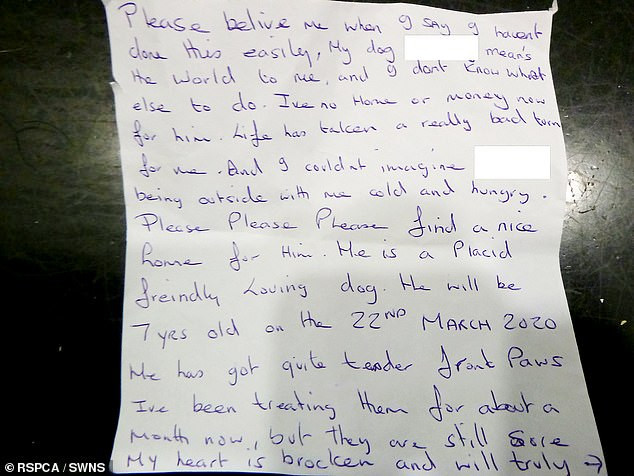 Please belive me when I say I havent
done this easily, My dog mean's
the world to me, and I dont know what
else to do. Ive no Home or money now
for him. Life has taken a really bad turn
for me. And I couldnt imagine
being outside with me cold and hungry.
Please Please Please find a nice
home for Him. He is a Placid
freindly Loving dog. He will be
7 yrs old on the 22ND MARCH 2020
He has got quite tender front Paws
Ive been treating them for about a
month now, but they are still sore
My heart is brocken and will truly →
© RSPCA / SWNS